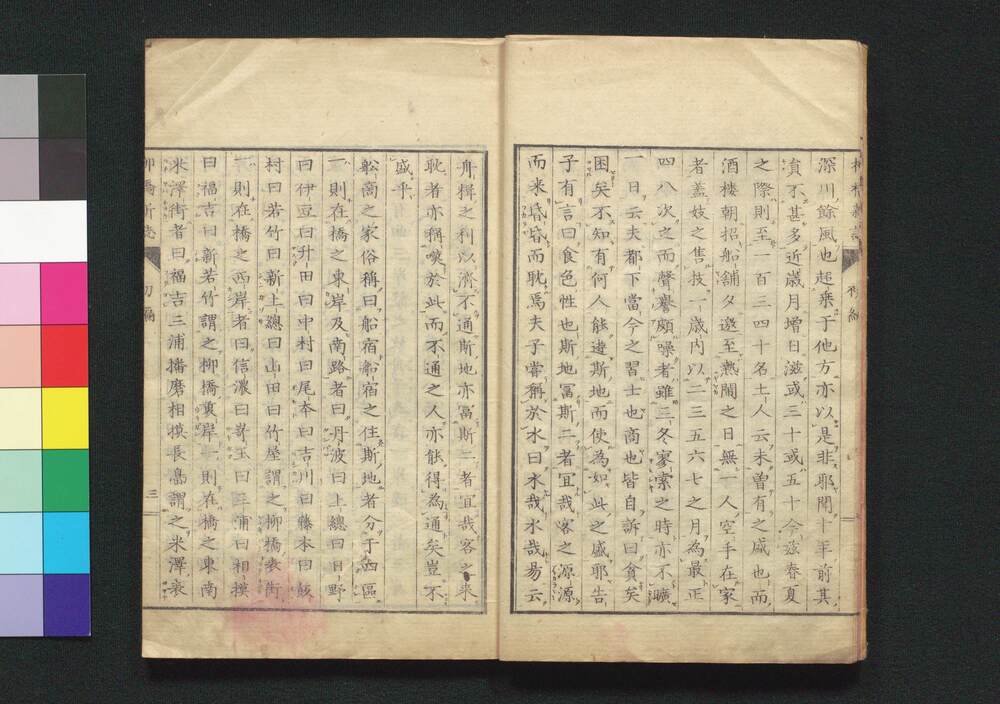 深川餘風也起乗于他方亦以是非耶聞十年前其
濵不甚多近歳月増日滋或三十或五十今茲春夏
之際則至一百三四十名土人云未曽有之盛也而
酒楼朝招船舗夕邀至熱閙之日無一人空手在家
者蓋妓之售技一歳内以二三五六七之月為最正
四八次之而聲譽頗噪者雖三冬寥索之時亦不曠
一日云夫都下當今之習士也商也皆自訴曰貧矣
困矣不知有何人能遊斯地而使為如此之盛耶告
子有言曰食色性也斯地冨斯二者宜哉客之源源
而来昏昏而耽焉夫子嘗稱於水曰水哉水哉易云
舟楫之利以濟不通斯地亦冨斯二者宜哉客之来
耽者亦稱嘆於此而不通之人亦能得為通矣豈不
盛乎
舩商之家俗稱曰船宿船宿之住斯地者分于四區
一則在橋之東岸及南路者曰丹波曰上總曰日野
曰伊豆曰升田曰中村曰尾本曰吉川曰藤本曰
村曰若竹曰新上總曰山田曰竹屋謂之柳橋表街
一則在橋之西岸者曰信濃曰嵜玉曰三浦曰相摸
曰福吉曰新若竹謂之柳橋裏岸一則在橋之東南
米澤街者曰福吉三浦播磨相摸長嶌謂之米澤裏
柳橋新志 初編 三